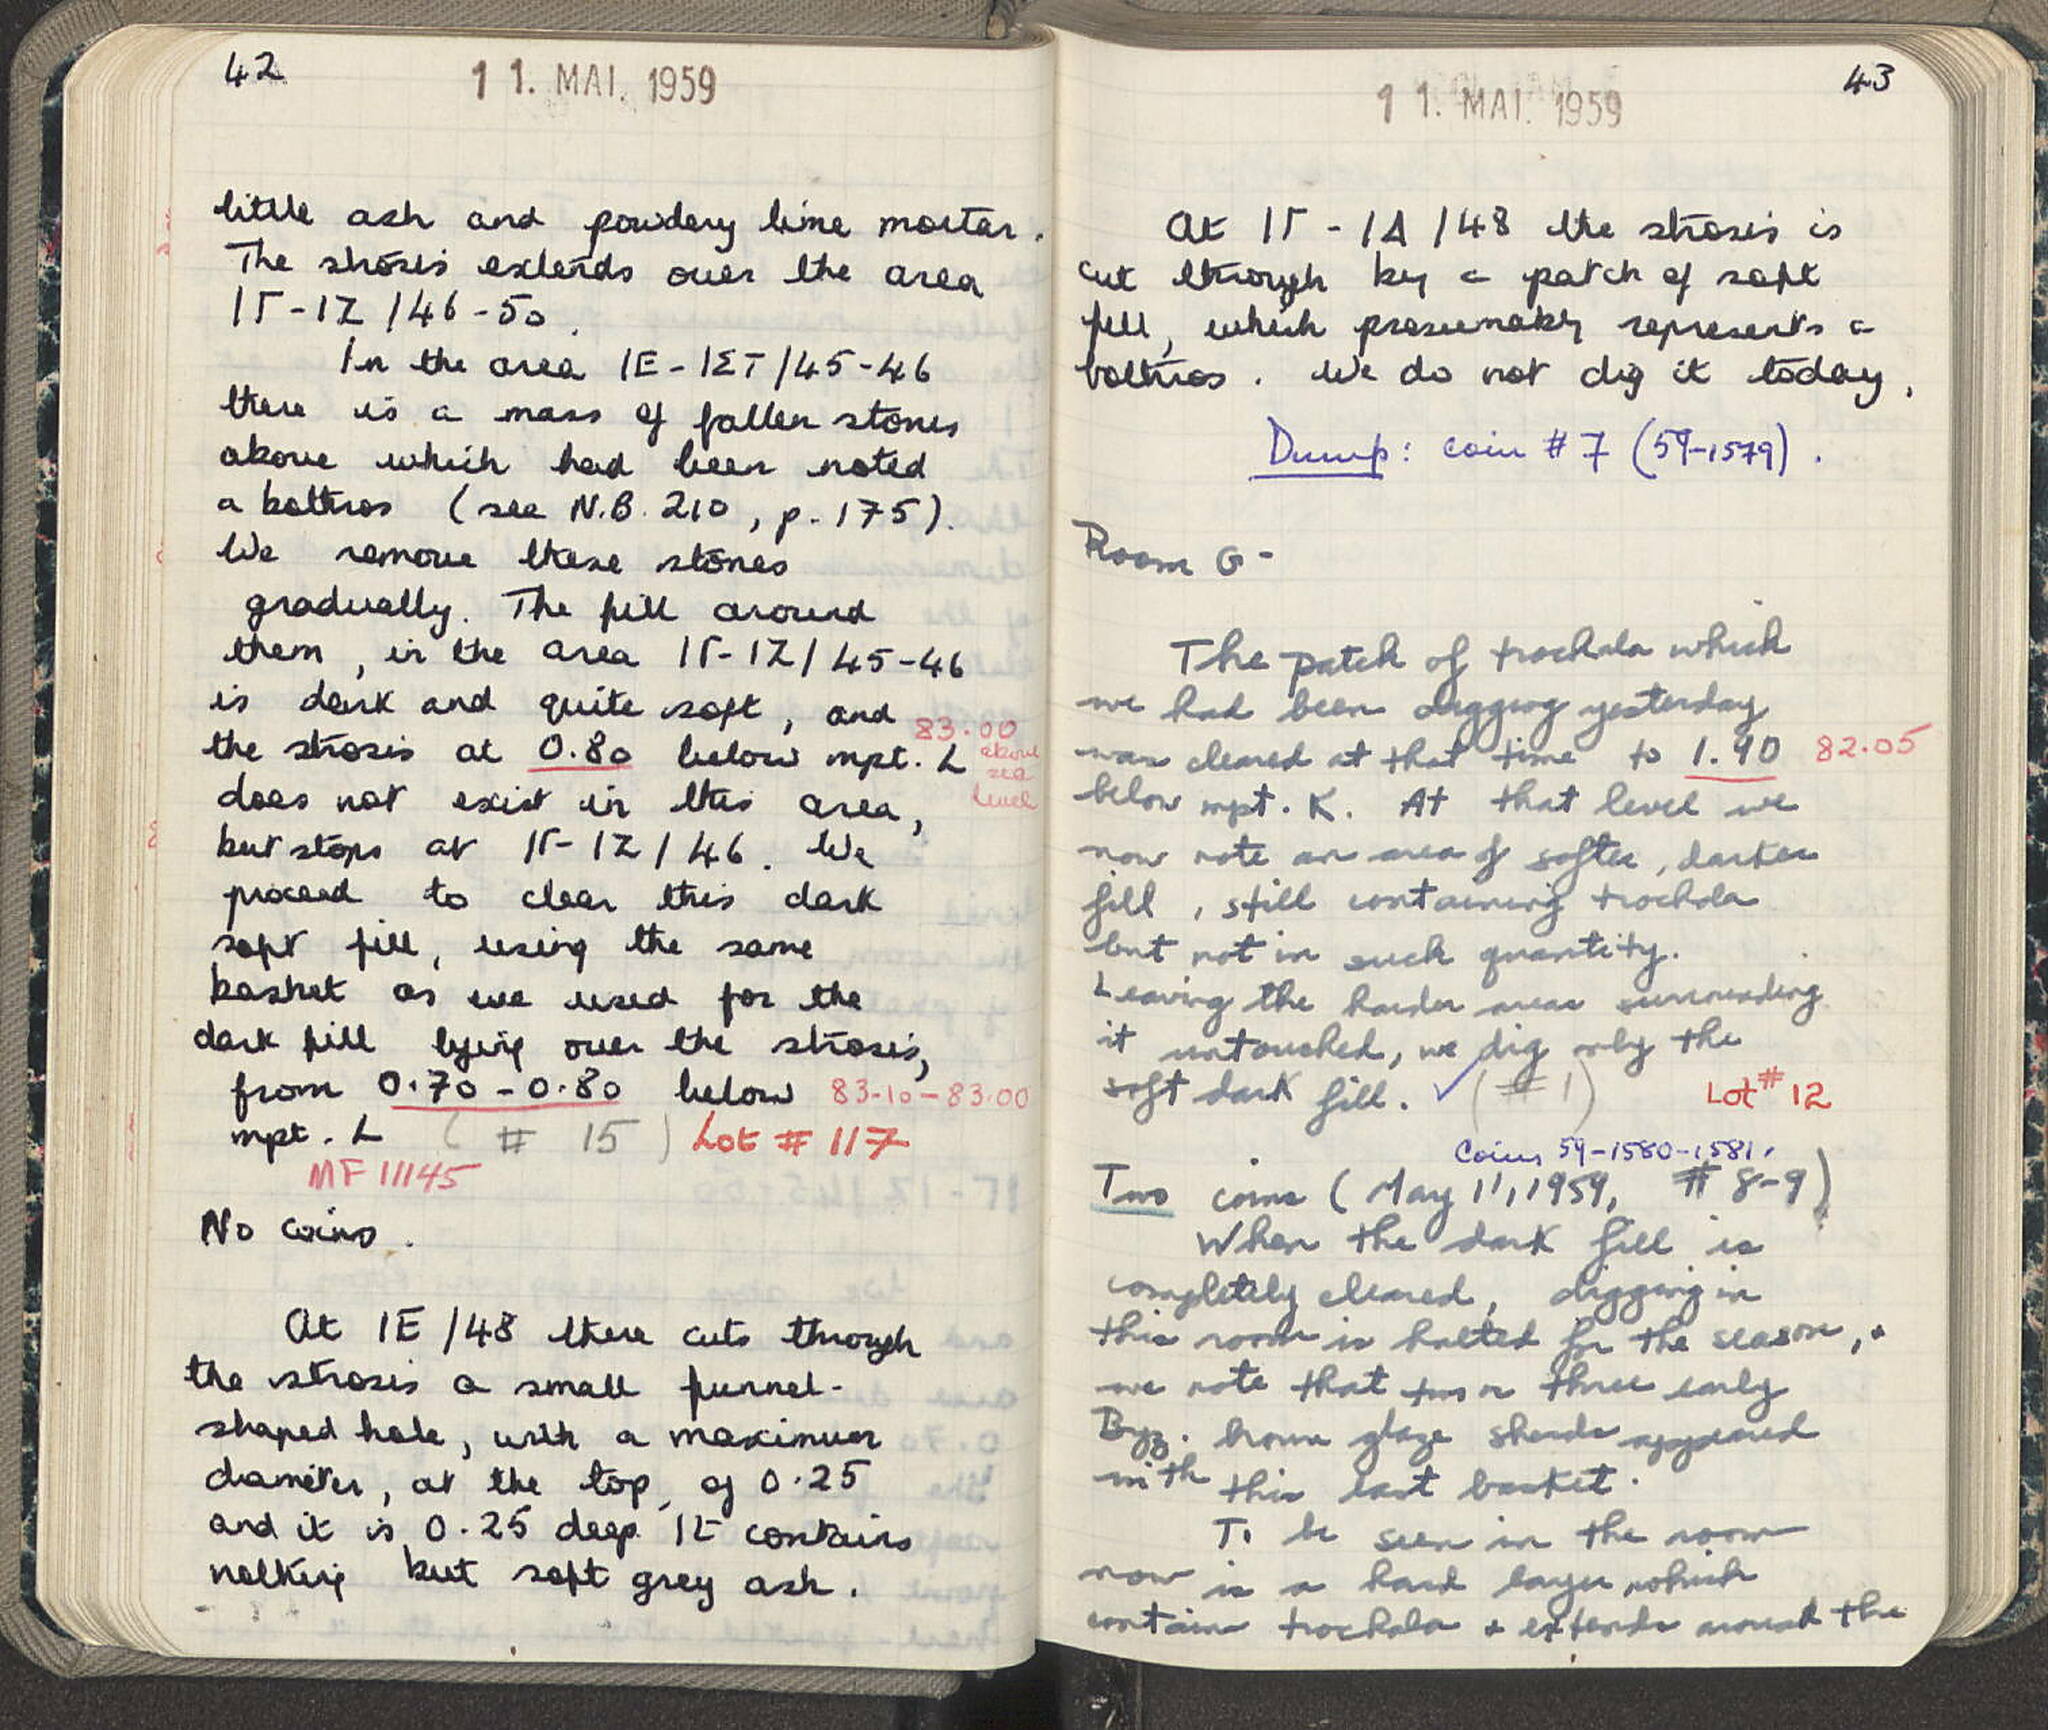 42
11. MAI. 1959
little ash and powdery lime mortar.
The strosis extends over the area
ΙΓ-ΙΖ/46-50.
In the area ΙΕ-ΙΣΤ/45-46
there is a mass of fallen stones
above which had been noted
a bothros (see N.B. 210, p. 175).
We remove these stones
gradually. The fill around
them, in the area ΙΓ-ΙΖ/45-46
is dark and quite soft, and 83.00
the strosis at 0.80 below mpt. L above
sea
does not exist in this area, level
but stops at ΙΓ-ΙΖ/46. We
proceed to clear this dark
soft fill, using the same
basket as we used for the
dark fill lying over the strosis,
from 0.70-0.80 below 83.10-83.00
mpt. L (# 15) Lot # 117
MF 11145
No coins.
At ΙΕ/48 there cuts through
the strosis a small funnel-
shaped hole, with a maximum
diameter, at the top, of 0.25
and it is 0.25 deep. It contains
nothing but soft grey ash.
43
11. MAI. 1959
At ΙΓ-ΙΔ/48 the strosis is
cut through by a patch of soft
fill, which presumably represents a
bothros. We do not dig it today.
Dump: coin #7 (59-1579).
Room G-
The patch of trochala which
we had been digging yesterday
was cleared at that time to 1.90 82.05
below mpt. K. At that level we
now note an area of softer, darker
fill, still containing trochala
but not in such quantity.
Leaving the harder areas surrounding
it untouched, we dig only the
soft dark fill. ✓ (#1) Lot # 12
Coins 59-1580-1581.
Two coins (May 11, 1959, # 8-9)
When the dark fill is
completely cleared, digging in
this room is halted for the season, +
we note that two or three early
Byz. brown glaze sherds appeared
with this last basket.
To be seen in the room
now is a hard layer which
contains trochala + extends around the